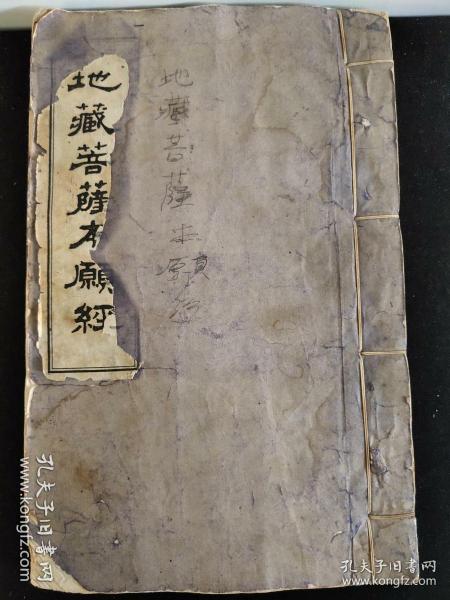 地藏菩薩本願經
地藏菩薩本願經
孔夫子旧书网
www.kongfz.com
孔夫子旧书网
www.kongfz.com